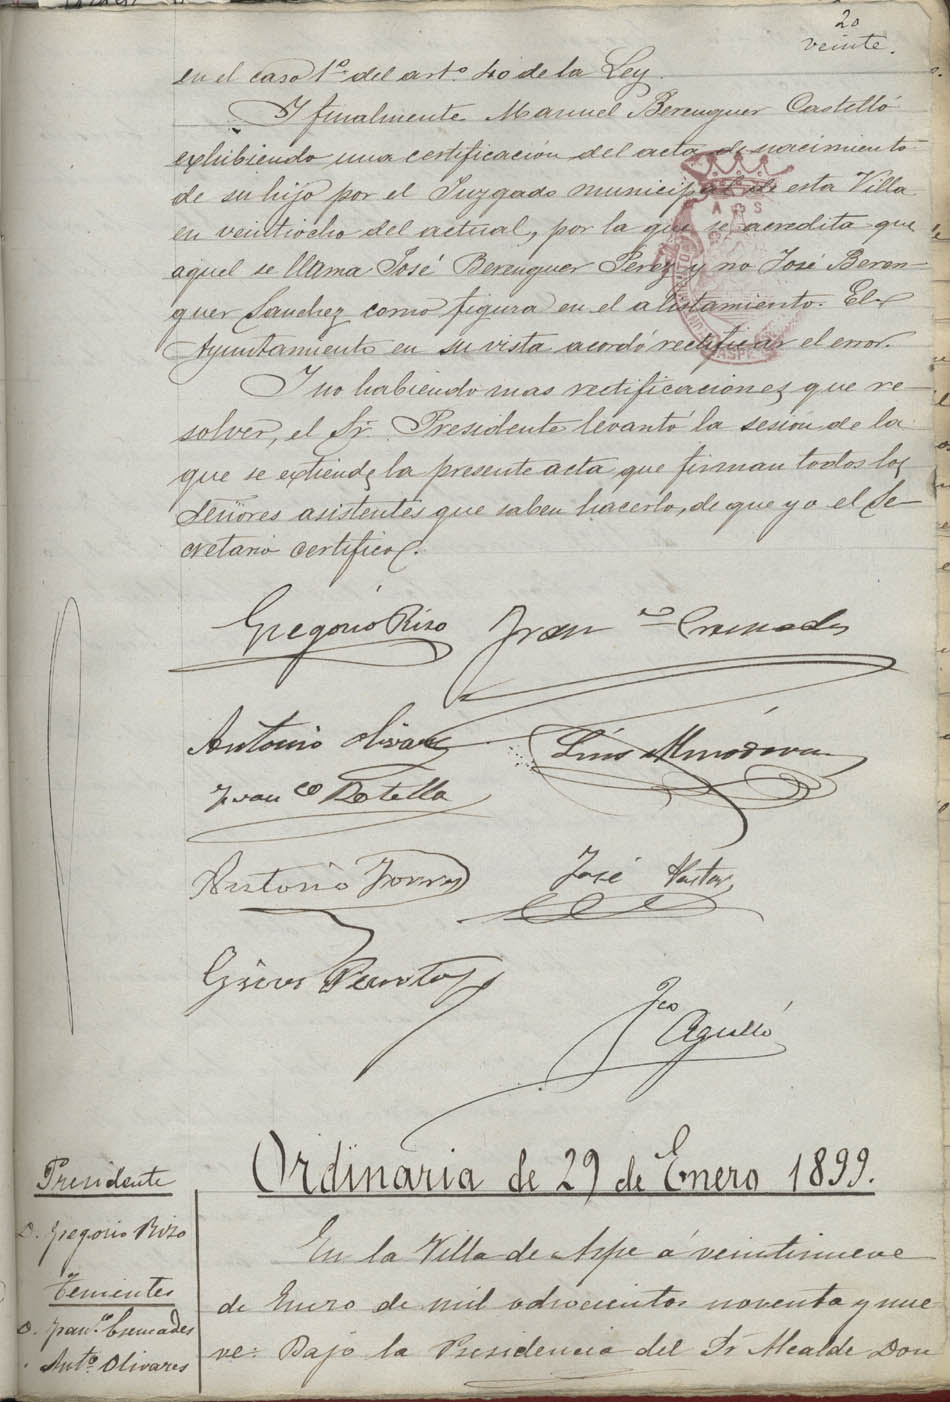 20
veinte.
en el caso 1º del artº 40 de la Ley.
Y finalmente Manuel Berenguer Castelló
exhibiendo una certificación del acta de nacimiento
de su hijo por el Juzgado municipal de esta Villa
en veintiocho del actual, por la que se acredita que
aquel se llama José Berenguer Perez y no José Beren-
guer Sanchez como figura en el alistamiento. El
Ayuntamiento en su vista acordó rectificar el error.
Y no habiendo mas rectificaciones que re-
solver, el Sr. Presidente levantó la sesión de la
que se extiende la presente acta que firman todos los
Señores asistentes que saben hacerlo, de que yo el Se-
cretario certifico.
Gregorio Rizo Franco Cremades
Antonio Olivares Luis Mirodever
Franco Botella
Antonio Torres José Pastor
Ginés
Fco Agulló
Ordinaria de 29 de Enero 1899.
Presidente
D. Gregorio Rizo
Tenientes
D. Franco Cremades
Antº Olivares
En la Villa de Aspe á veintinueve
de Enero de mil ochocientos noventa y nue
ve: Bajo la Presidencia del Sr Alcalde Don